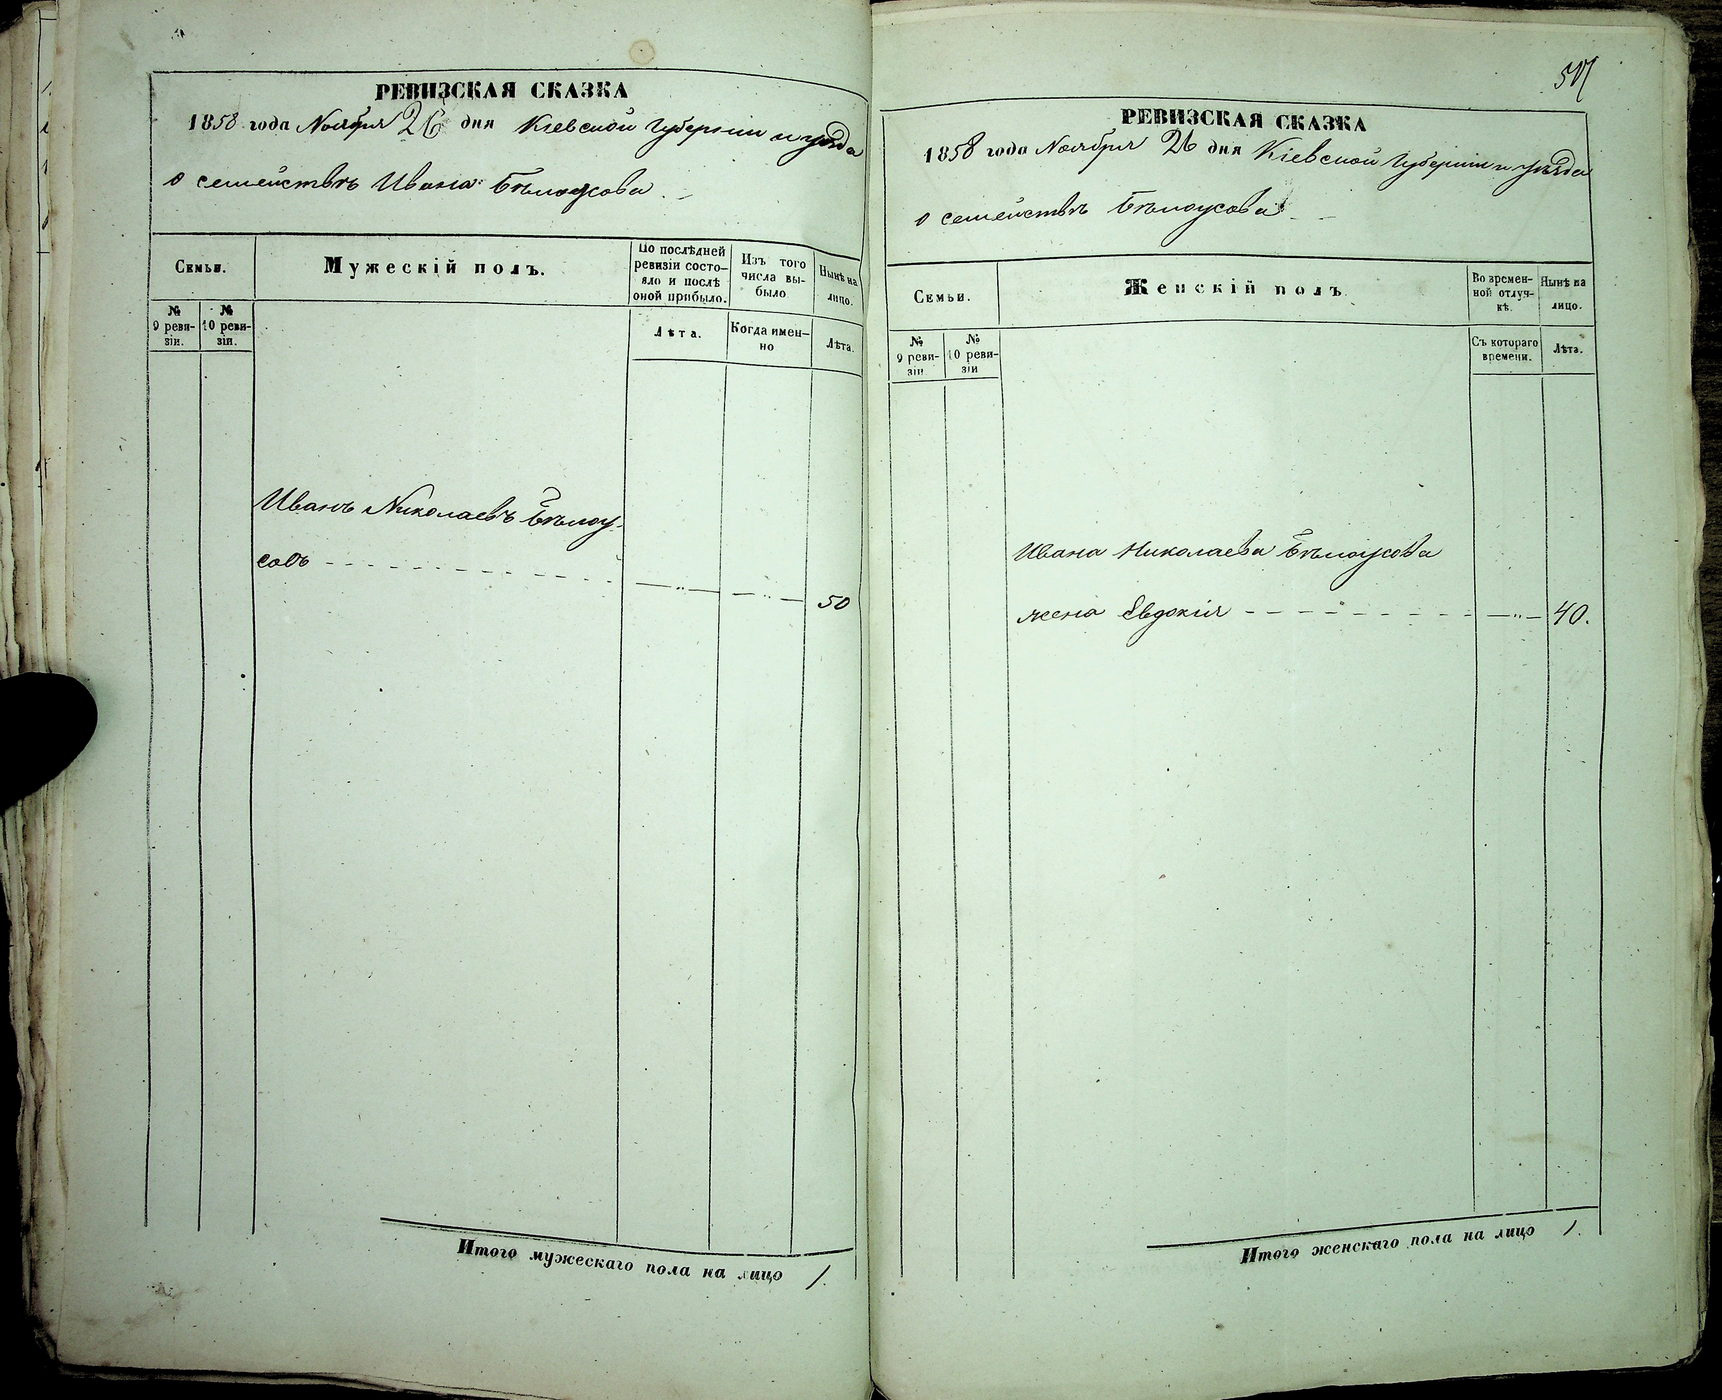 РЕВИЗСКАЯ СКАЗКА
1858 года Ноября 26 дня Кіевской Губерніи и уѣзда
о семействѣ Ивана Бѣлоусова
Семьи.
Мужескій полъ.
По послѣдней ревизіи состояло и послѣ оной прибыло.
Изъ того числа выбыло
Нынѣ на лицо.
№ 9 ревизіи.
№ 10 ревизіи.
Лѣта.
Когда именно
Лѣта.
Иванъ Николаевъ Бѣлоу-
совъ
50
Итого мужескаго пола на лицо 1.
РЕВИЗСКАЯ СКАЗКА
1858 года Ноября 26 дня Кіевской Губерніи и уѣзда
о семействѣ Бѣлоусова
Семьи.
Женскій полъ
Во временной отлучкѣ.
Нынѣ на лицо.
№ 9 ревизіи
№ 10 ревизіи
Съ котораго времени.
Лѣта.
Ивана Николаева Бѣлоусова
жена Евдокія
40.
Итого женскаго пола на лицо 1.